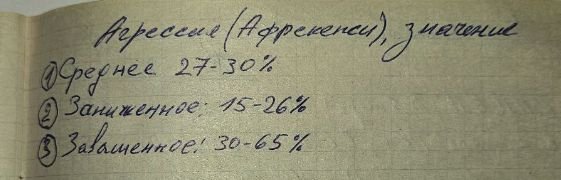 Агрессия (Афрекенси), значение
① Среднее 27-30%
② Заниженное: 15-26%
③ Завышенное: 30-65%